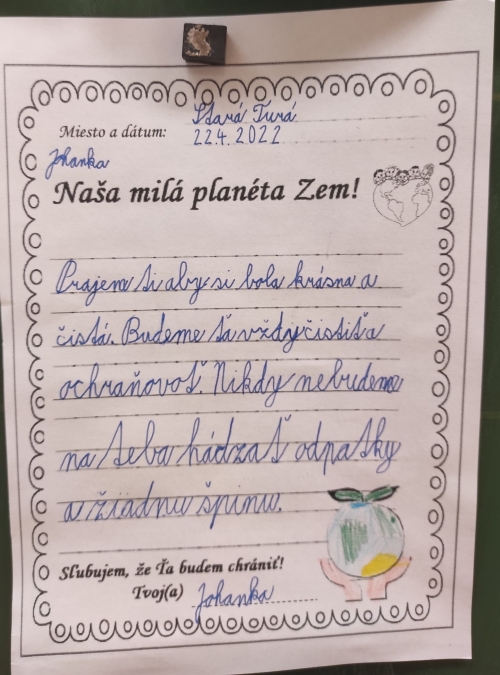 Miesto a dátum: Stará Turá
22.4.2022
Johanka
Naša milá planéta Zem!
Prajem ti aby si bola krásna a
čistá. Budeme ťa vždy čistiť a
ochraňovať. Nikdy nebudeme
na teba hádzať odpatky
a žiadnu špinu.
Sľubujem, že Ťa budem chrániť!
Tvoj(a) Johanka